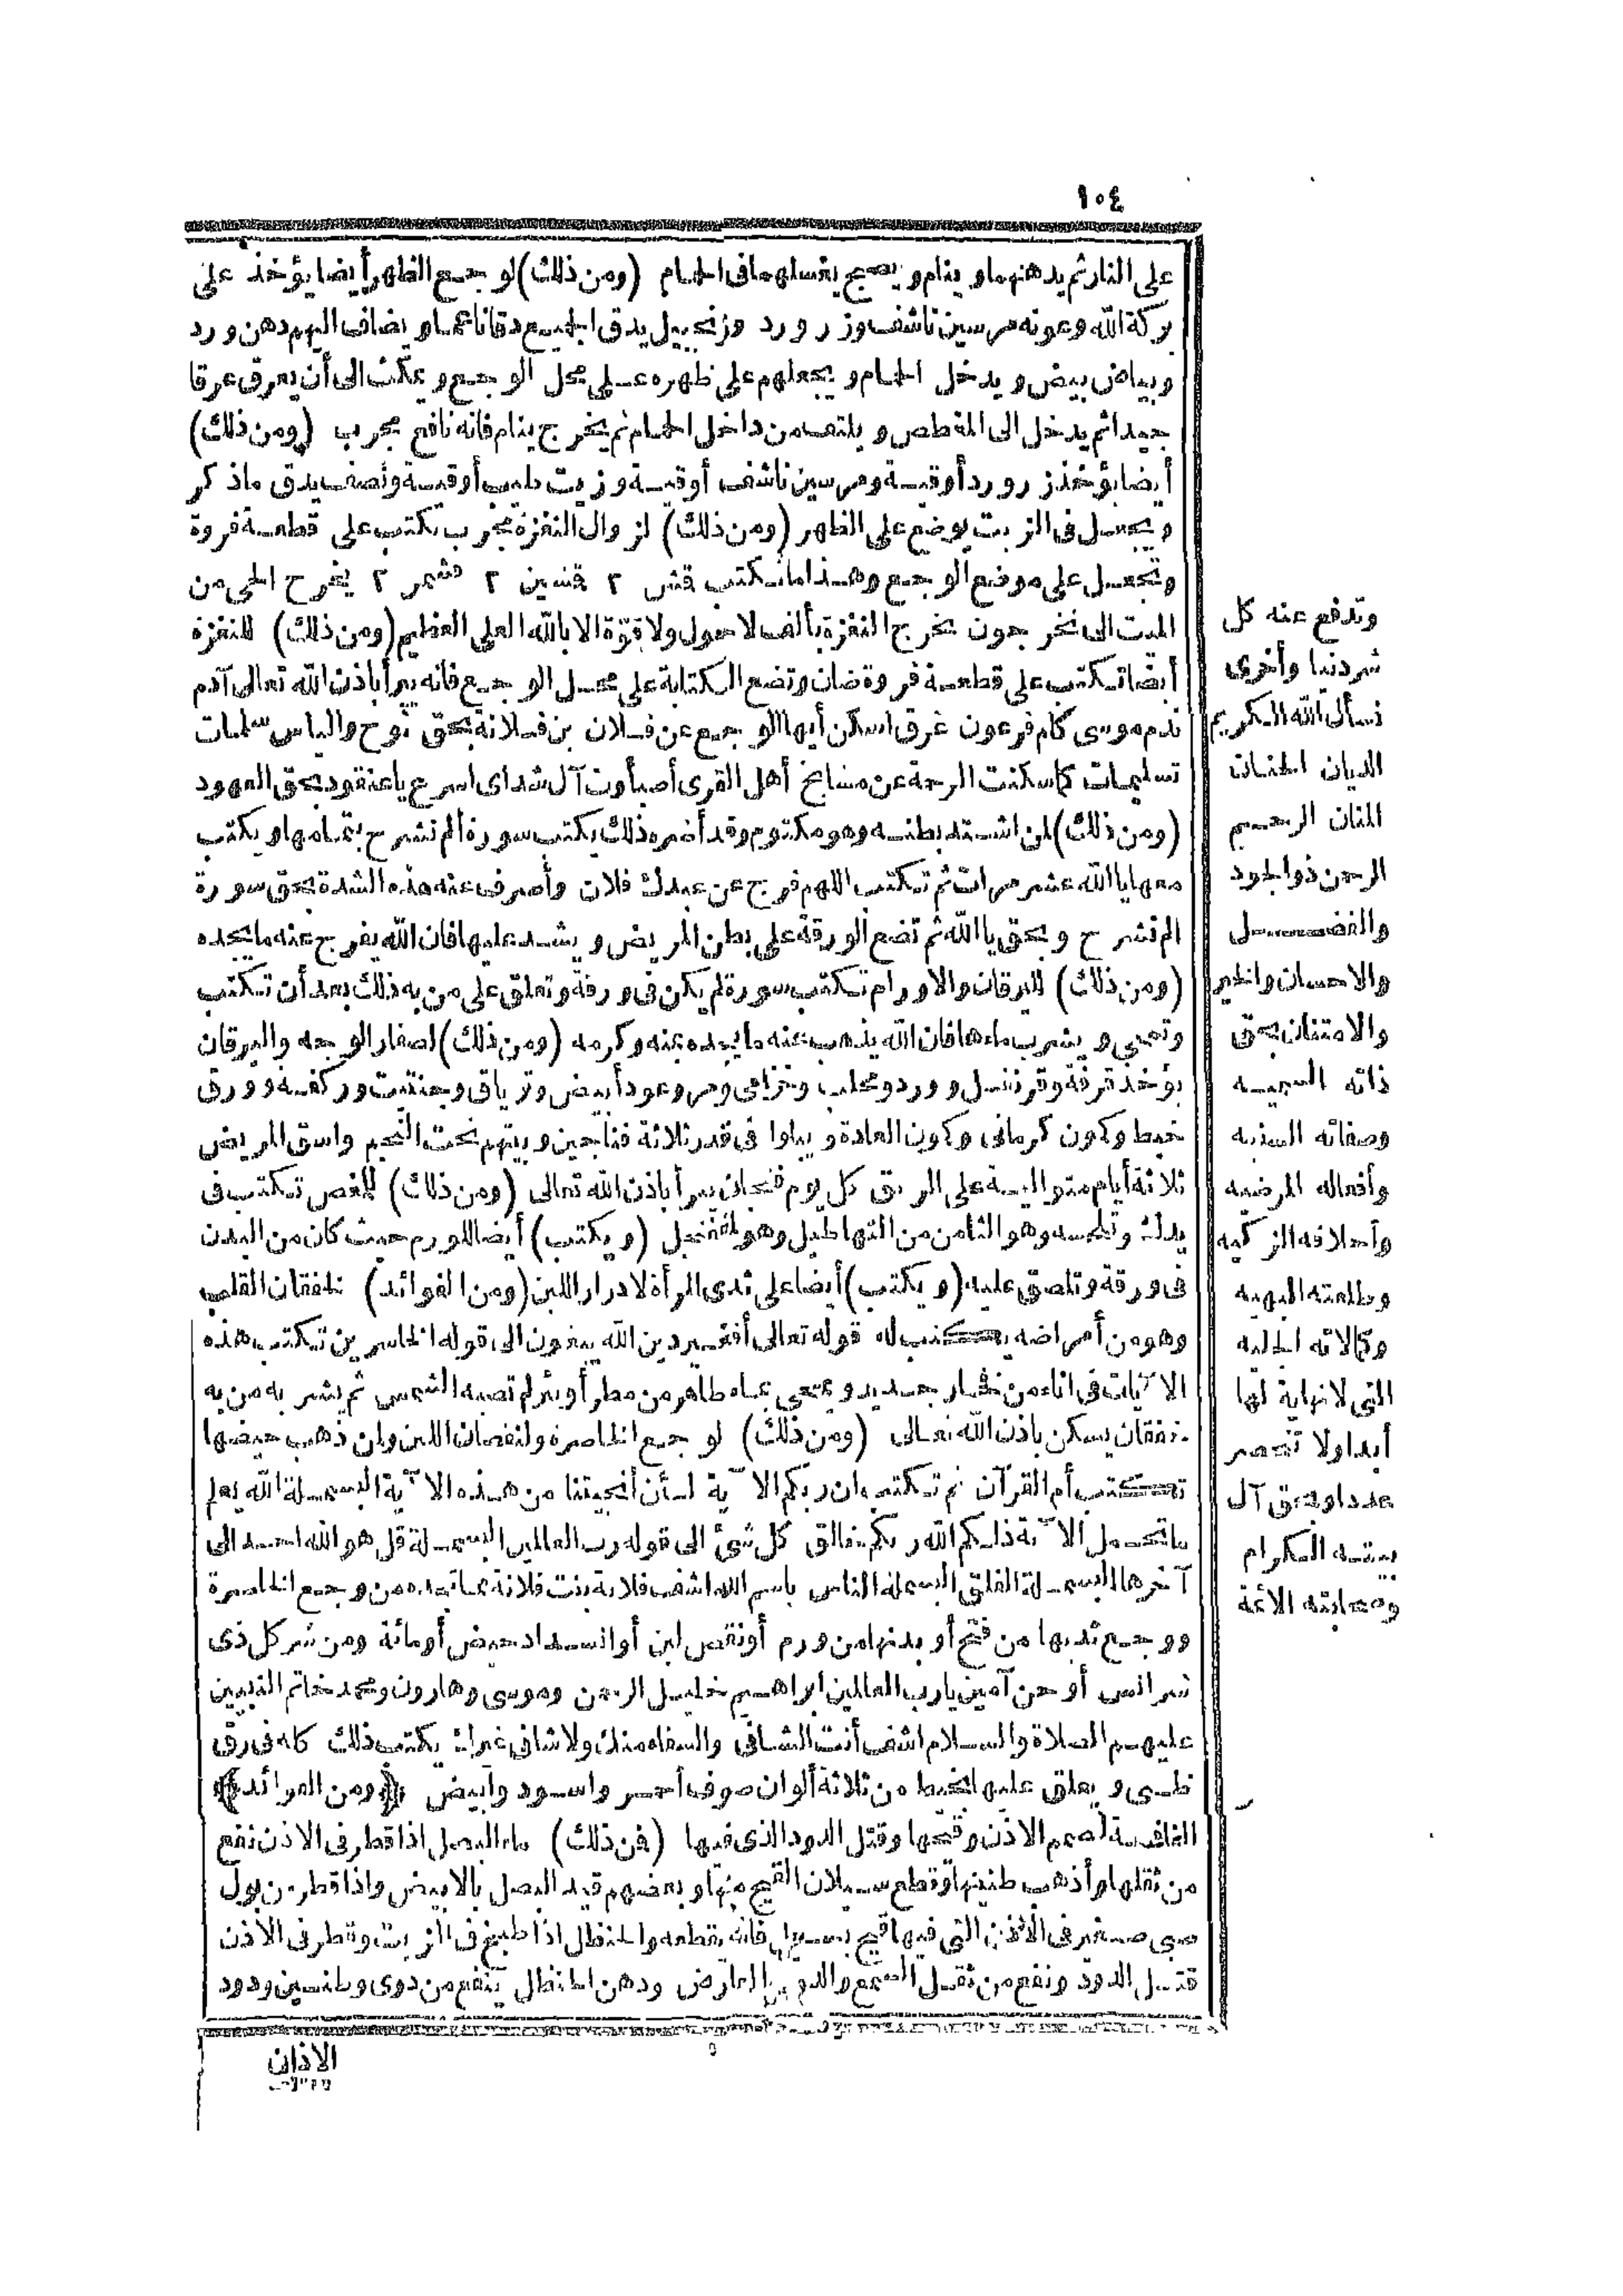 ١٠٤
على النار ثم يدهنهما وينام ويصبح يغسلهما فى الحمام (ومن ذلك) لوجع الظهر أيضا يؤخذ على
بركة الله وعونه مرسين ناشف وزر ورد وزنجبيل يدق الجميع دقا ناعما ويضاف اليهم دهن ورد
وبياض بيض ويدخل الحمام ويجعلهم على ظهره على محل الوجع ويمكث الى أن يعرق عرقا
جيدا ثم يدخل الى المغطس ويلتف من داخل الحمام ثم يخرج ينام فانه نافع مجرب (ومن ذلك)
أيضا يؤخذ زر ورد أوقية ومرسين ناشف أوقية وزيت طيب أوقية ونصف يدق ماذكر
ويجعل فى الزيت يوضع على الظهر (ومن ذلك) لزوال النغزة مجرب تكتب على قطعة فروة
وتجعل على موضع الوجع وهذا ما تكتب قش ٢ قشين ٢ ٢ يخرج الحى من
الميت الى تخرجون يخرج النغزة بألف لاحول ولاقوة الا بالله العلى العظيم (ومن ذلك) للنغزة
أيضا تكتب على قطعة فروة ضان وتضع الكتابة على محل الوجع فانه يبرأ باذن الله تعالى آدم
ندم موسى كام فرعون غرق اسكن أيها الوجع عن فلان بن فلانة بحق نوح والياس سلمات
تسليمات كما سكنت الرحة عن مشايخ أهل القرى أصبأوت آل شداى اسرع ياعنقود بحق العهود
(ومن ذلك) لمن اشتد بطنه وهو مكتوم وقد أضره ذلك يكتب سورة ألم نشرح بتمامها ويكتب
معها ياالله عشر مرات ثم تكتب اللهم فرج عن عبدك فلان وأصرف عنه هذه الشدة بحق سورة
الم نشرح وبحق ياالله ثم تضع الورقة على بطن المريض ويشد عليها فان الله يفرج عنه ما يجده
(ومن ذلك) لليرقان والاورام تكتب سورة لم يكن فى ورقة وتعلق على من به ذلك بعد أن تكتب
وتمحى ويشرب ماءها فان الله يذهب عنه ما يجده بمنه وكرمه (ومن ذلك) لصفار الوجه واليرقان
يؤخذ قرفة وقرنفل وورد ومحلب وخزامى ومر وعود أبيض وترياق وجنتيت وركفة وورق
خبط وكمون كرمانى وكمون العادة ويبلوا فى قدر ثلاثة فناجين وبيتهم تحت النجم واسق المريض
ثلاثة أيام متوالية على الريق كل يوم فنجان يبرأ باذن الله تعالى (ومن ذلك) للمغص تكتب فى
يدك وتلحسه وهو الثامن من التهاطيل وهو (ويكتب) أيضا للورم حيث كان من البدن
فى ورقة وتلصق عليه (ويكتب) أيضا على ثدى المرأة لادرار اللبن (ومن الفوائد) لخفقان القلب
وهو من أمراضه يكتب له قوله تعالى أفغير دين الله يبغون الى قوله الخاسرين تكتب هذه
الآيات فى اناء من فخار جديد ويمحى بماء طاهر من مطر أو بئر لم تصبه الشمس ثم يشربه من به
خفقان يسكن باذن الله تعالى (ومن ذلك) لوجع الخاصرة ولنقصان اللبن وان ذهب حيضها
تكتب أم القرآن ثم تكتب ان ربكم الآية لئن أنجيتنا من هذه الآية البسملة الله يعلم
ما تحمل الآية ذلكم الله ربكم خالق كل شئ الى قوله رب العالمين البسملة قل هو الله احد الى
آخرها البسملة الفلق البسملة الناس باسم الله اشف فلانة بنت فلانة مما تجده من وجع الخاصرة
ووجع ثديها من فتح أو بدنها من ورم أو نقص لبن أو انسداد حيض أو مائة ومن شر كل ذى
شر انس أو جن آمين يارب العالمين ابراهيم خليل الرحمن وموسى وهارون ومحمد خاتم النبيين
عليهم الصلاة والسلام اشف أنت الشافى والشفاء منك ولا شافى غيرك يكتب ذلك كله فى رق
ظبى ويعلق عليها بخيط من ثلاثة ألوان صوف أحمر واسود وأبيض ﴿ومن الفوائد﴾
النافعة لصمم الاذن وقيحها وقتل الدود الذى فيها (فمن ذلك) ماء البصل اذا قطر فى الاذن نفع
من ثقلها وأذهب طنينها وقطع سيلان القيح منها وبعضهم قيد البصل بالابيض واذا قطر من بول
صبى صغير فى الاذن التى فيها قيح يسيل فانه يقطعه والحنظل اذا طبخ فى الزيت وقطر فى الاذن
قتل الدود ونفع من ثقل السمع والدوى العارض ودهن الحنظل ينفع من دوى وطنين ودود
الاذان
وتدفع عنه كل
شر دنيا وأخرى
نسأل الله الكريم
الديان الحنان
المنان الرحيم
الرحمن ذو الجود
والفضل
والاحسان والخير
والامتنان بحق
ذاته العمية
وصفاته السنيه
وأفعاله المرضيه
وأخلاقه الزكيه
وطلعته البهيه
وكمالاته الجليه
التى لانهاية لها
أبدا ولا تنحصر
عددا وبحق آل
بيته الكرام
وصحابته الائمة